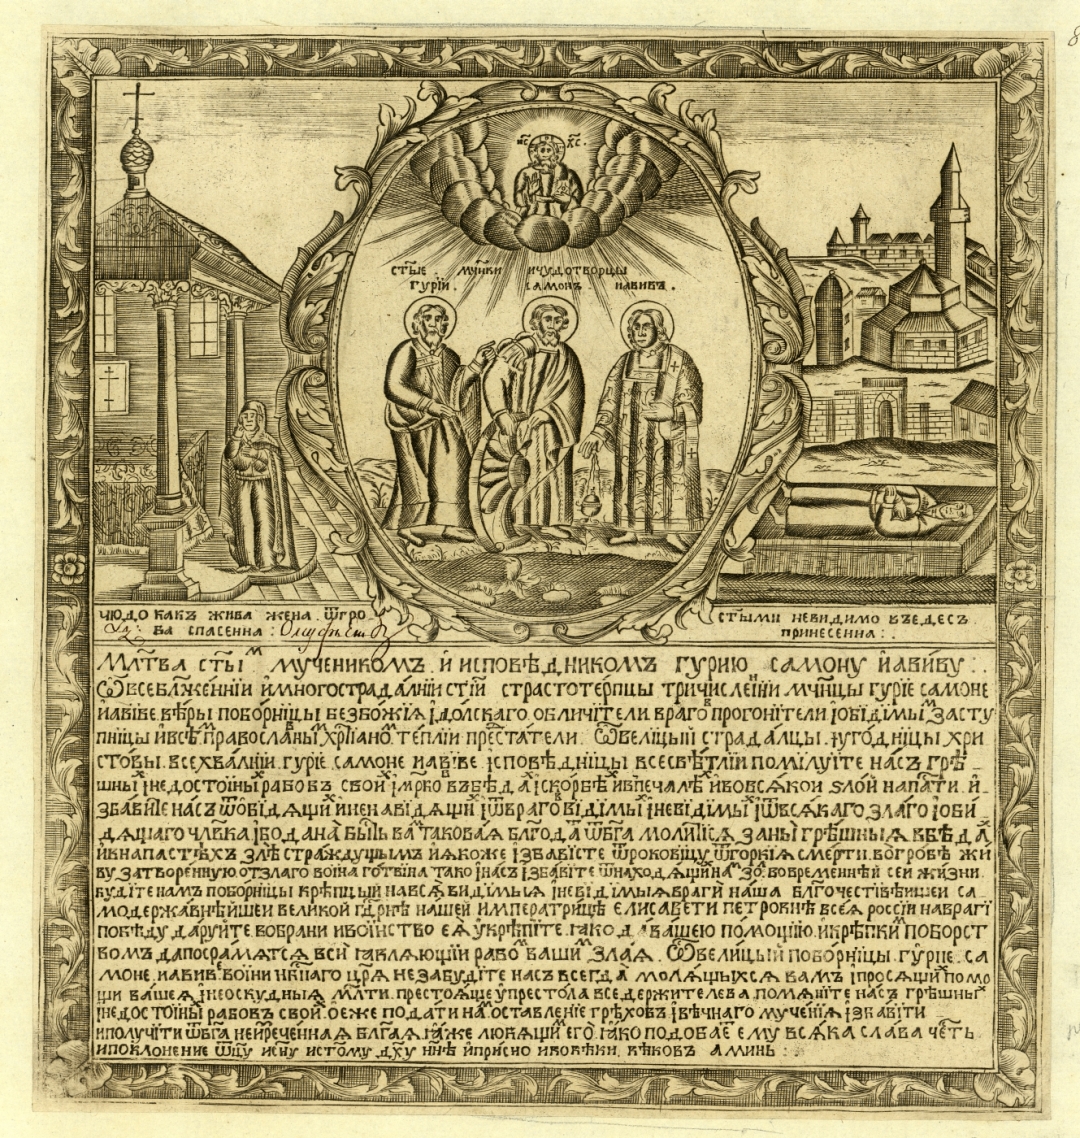 ІИС ХС.
СТЫЕ МУЧНКИ ИЧУДОТВОРЦЫ
ГУРІЙ. САМОНЪ ИАВИВЪ.
ЧЮДО КАКЪ ЖИВА ЖЕНА. ѾГРО
БА СПАСЕННА:
СТЫМИ НЕВИДИМО ВЪЕДЕСЪ
ПРИНЕСЕННА:.
МЛТВА СТЫМ МУЧЕНИКОМЪ. Й ИСПОВѢДНИКОМЪ ГУРИЮ САМОНУ ЙАВИВУ:.
ѾВСЕБЛЖЕННІИ ЙМНОГОСТРАДАЛНІИ СТІЙ СТРАСТОТЕРПЦЫ ТРИЧИСЛЕННІИ МЧНЦЫ ГУРІЕ САМОНЕ
ЙАВІВЕ. ВѢРЫ ПОБОРНІЦЫ БЕЗБОЖІѦ ІДОЛСКАГО. ОБЛИЧІТЕЛИ ВРАГОВ ПРОГОНІТЕЛИ ІОБІДІМЫМ ЗАСТУ
ПНІЦЫ ЙВСѢМ ПРАВОСЛАВНЫМ ХРІТІАНОМ ТЕПЛІИ ПРЕСТАТЕЛИ: ѾВЕЛІЦЫЙ СТРАДАЛЦЫ. ІУГОДНІЦЫ ХРИ
СТОВЫ. ВСЕХВАЛНІИ. ГУРІЕ. САМОНЕ ИАВІВЕ. ІСПОВѢДНІЦЫ ВСЕСВѢТЛІИ ПОМІЛУІТЕ НАСЪ ГРѢ
ШНЫХ ІНЕДОСТОІНЫХ РАБОВЪ СВОИХ ІМРКО ВЪБѢДАХ ІСКОРБѢХ ИВПЕЧАЛЕХ ЙВОВСѦКОИ ЅЛОЙ НАПАСТИ. Й
ЗБАВИТЕ НАСЪ ѾОБІДѦЩИХ ИНЕНАВІДѦЩИХ ІѾВРАГОВ ВІДІМЫХ ІНЕВІДІМЫХ ІѾВСѦКАГО ЗЛАГО ІОБИ
ДѦЩАГО ЧЛВКА ІБО ДАНА БЫСТЬ ВАМ ТАКОВАѦ БЛГОДАТ ѾБГА МОЛИТІСѦ ЗА НЫ ГРѢШНЫѦ ВБѢДАХ
ЙВНАПАСТѢХЪ ЗЛѢ СТРАЖДУЩЫМЪ ЙѦКОЖЕ ІЗБАВІСТЕ ѾРОКОВІЦУ ѾГОРКІѦ СМЕРТИ. ВОГРОБѢ ЖИ
ВУ ЗАТВОРЕННУЮ. ОТЗЛАГО ВОІНА ГОТѲІНА ТАКО ІНАСЪ ІЗБАВІТЕ ѾНАХОДѦЩИХ НАМ ЗОЛ. ВОВРЕМЕННѢЙ СЕИ ЖИЗНИ.
БУДІТЕ НАМЪ ПОБОРНІЦЫ КРѢПЦЫЙ НАВСѦ ВИДІМЫѦ ІНЕВІДІМЫѦ ВРАГИ НАША БЛГОЧЕСТІВѢИШЕИ СА
МОДЕРЖАВНѢЙШЕИ ВЕЛИКОЙ ГДРНѢ НАШЕЙ ИМПЕРАТРИЦѢ ЕЛИСАВЕТИ ПЕТРОВНѢ ВСЕѦ РОССІИ НАВРАГІ
ПОБѢДУ ДАРУЙТЕ. ВОБРАНИ ИВОІНСТВО ЕѦ УКРѢПІТЕ. ꙖКО ДА ВАШЕЮ ПОМОЩІЮ. ИКРѢПКИМ ПОБОРСТ
ВОМЪ ДАПОСРАМѦТСѦ ВСИ ꙖВЛѦЮЩІИ РАБОМ ВАШИМ ЗЛАѦ. ѾВЕЛІЦЫЙ ПОБОРНІЦЫ. ГУРІЕ. СА
МОНЕ. ИАВИВЕ ВОІНИ НБНАГО ЦРѦ НЕ ЗАБУДІТЕ НАСЪ ВСЕГДА МОЛѦЩЫХСѦ ВАМЪ ІПРОСѦЩИХ ПОМО
ЩИ ВАШЕѦ ІНЕОСКУДНЫѦ МЛТИ. ПРЕСТОѦЩЕ УПРЕСТОЛА ВСЕДЕРЖИТЕЛЕВА. ПОМѦНІТЕ НАСЪ ГРѢШНЫХ
ІНЕДОСТОІНЫХ РАБОВЪ СВОИХ. ОЕЖЕ ПОДАТИ НАМ ОСТАВЛЕНІЕ ГРѢХОВЪ ІВѢЧНАГО МУЧЕНІѦ ІЗБАВІТИ
ИПОЛУЧІТИ ѾБГА НЕИЗРЕЧЕННАѦ БЛГАѦ ꙖЖЕ ЛЮБѦЩИМ ЕГО. ꙖКО ПОДОБАЕТ ЕМУ ВСѦКА СЛАВА ЧЕСТЬ
ИПОКЛОНЕНИЕ ѾЦУ ИСНУ ИСТОМУ ДХУ ННѢ ЙПРИСНО ИВОВѢКИ. ВѢКОВЪ АМИНЬ: